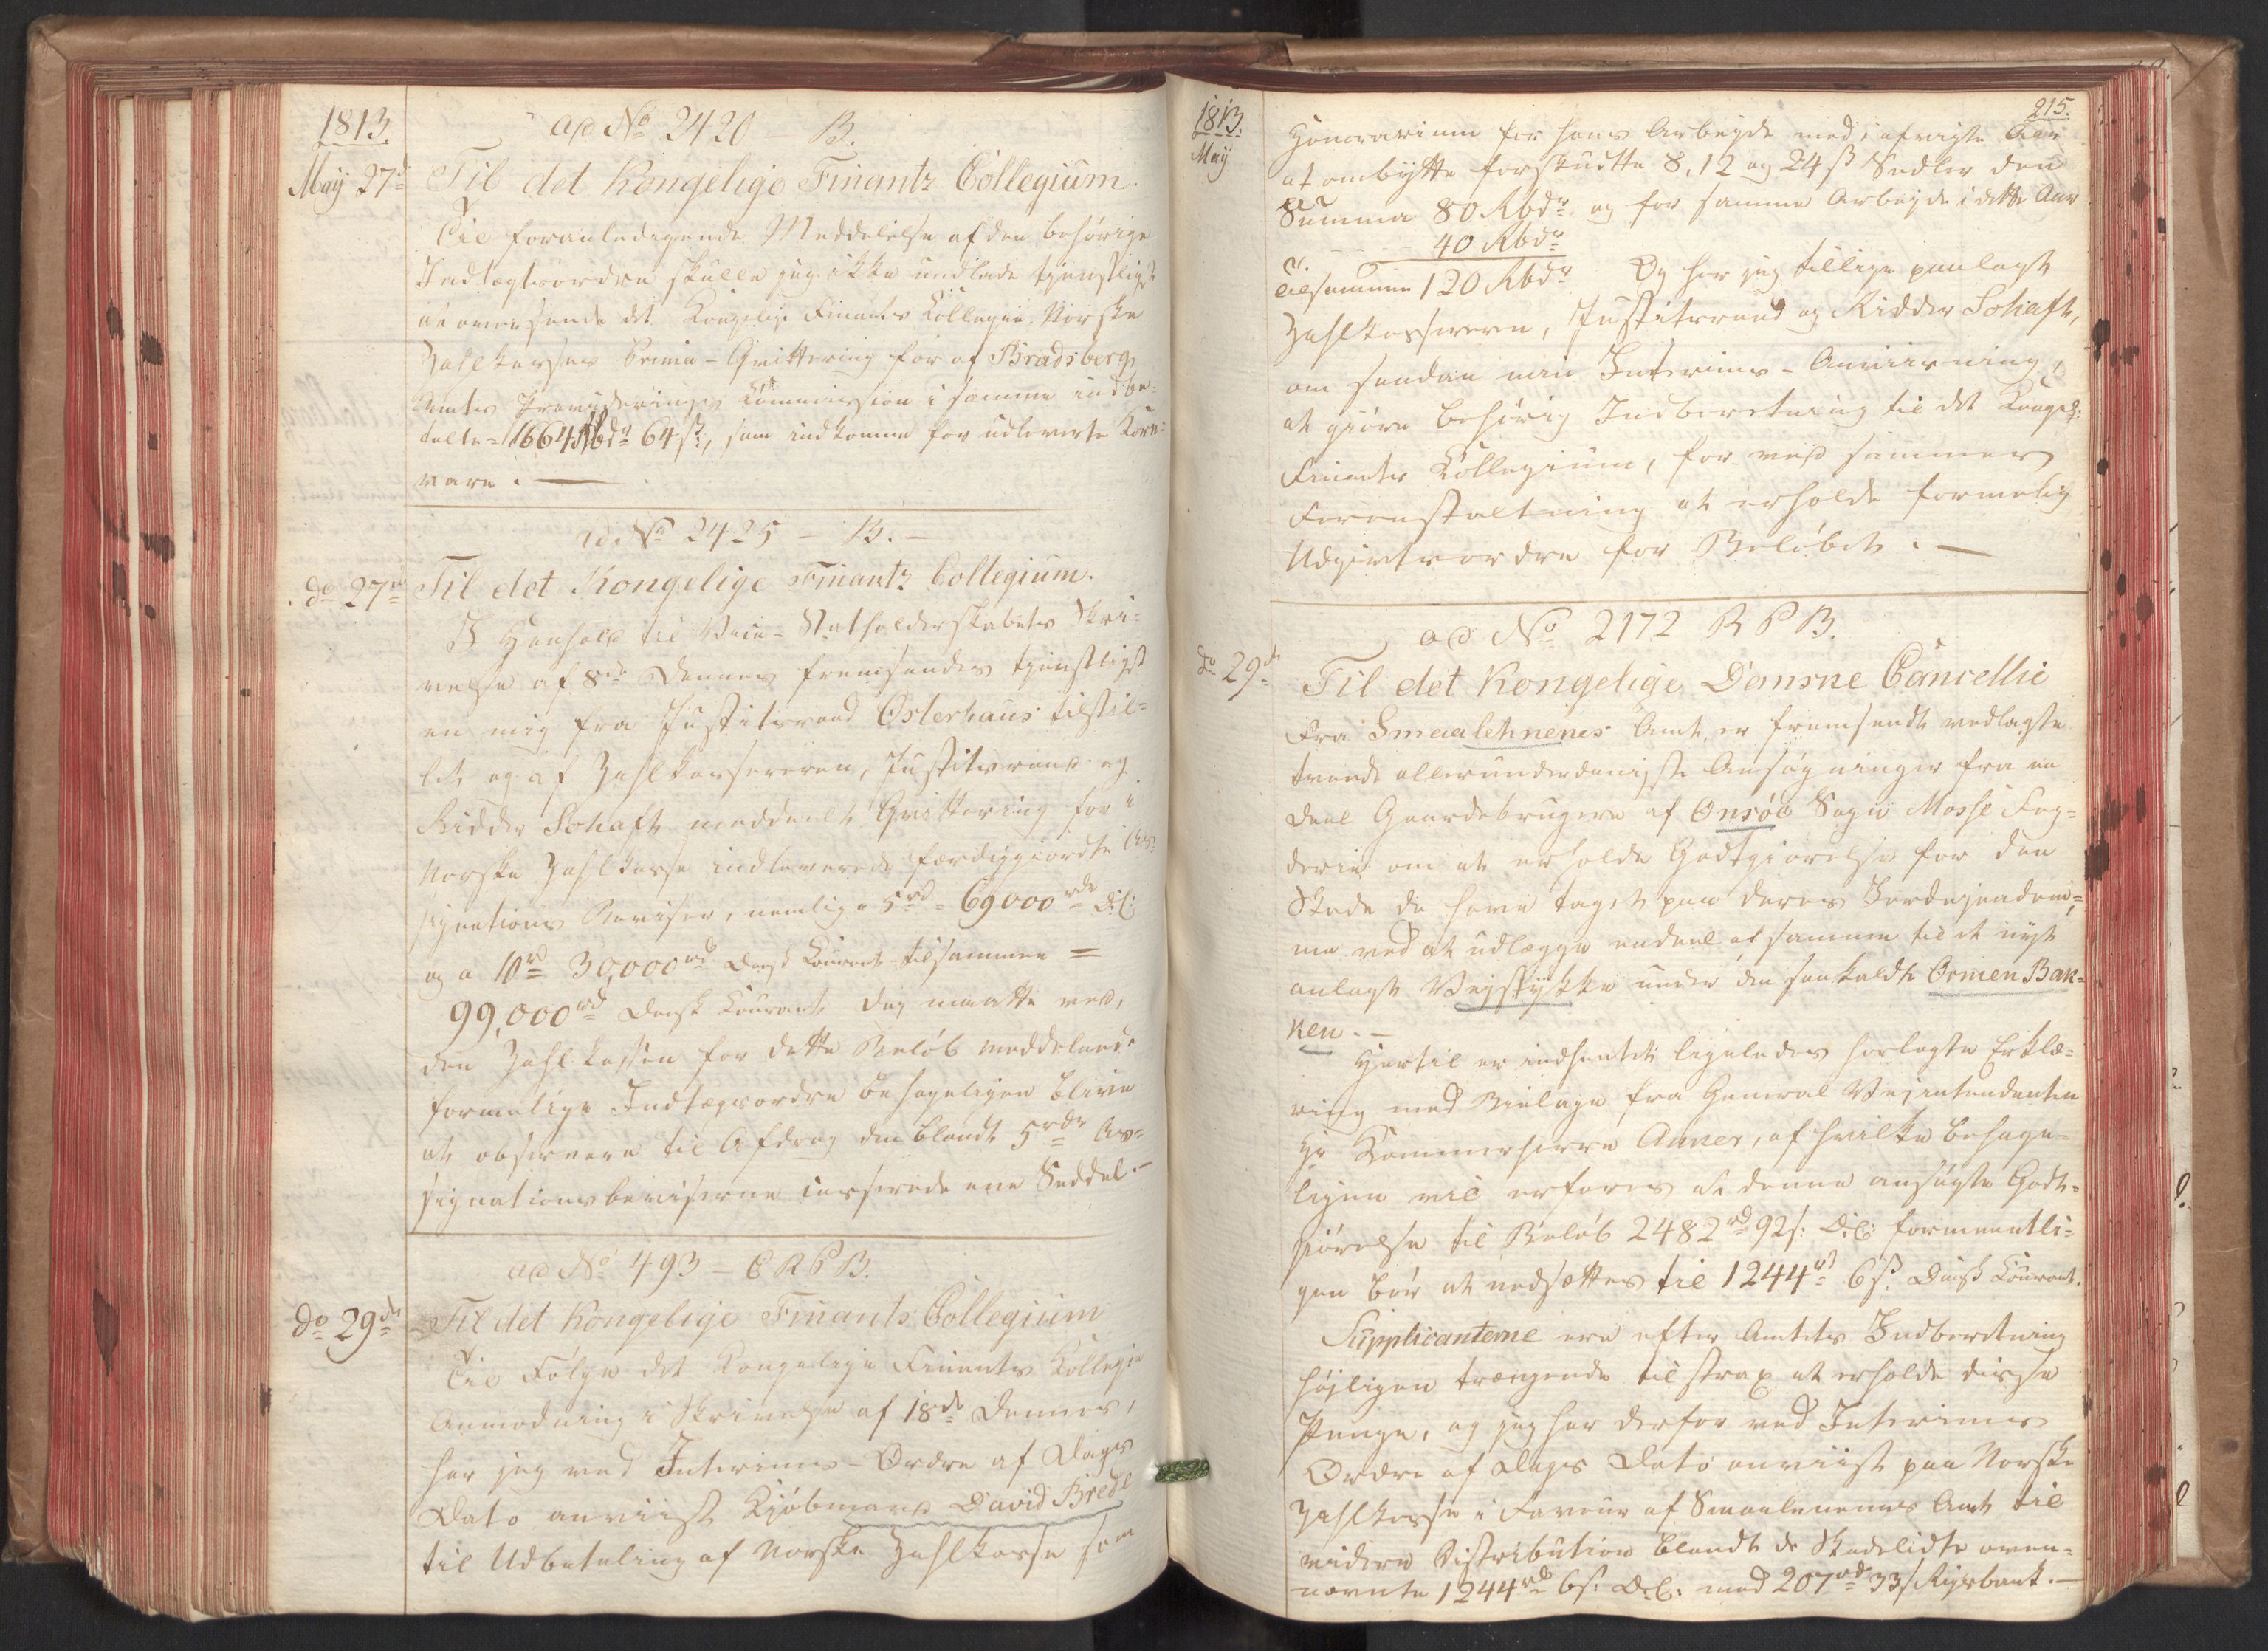 1813.
ad No 2420 B.
May 27de
Til det Kongelige Finantz Collegium.
Til foranledigende Meddelelse af den behørige
Indtægtsordre skulle jeg ikke undlade tjenstligst
at oversende det Kongelige Finants Collegie Norske
Zahlkasses Prima-Qvittering for af Bradsberg
Amtes Provideringes Commission i samme indbe-
talte 11664 Rbdr 64 s:, som indkomne for udleverte Korn-
vare. —
ad No 2425 - B. -
do 27de
Til det Kongelige Finantz Collegium.
I Henhold til Vice-Statholderskabets Skri-
velse af 8de Dennes fremsendes tjenstligst
en mig fra Justitsraad Osterhaus tilstil-
let og af Zahlkassereren, Justitsraad og
Ridder Schaft meddeelt Qvittering for i
Norske Zahlkasse indleverede færdiggiordte As-
signations Beviser, nemlig a 5rd = 69000rdr D:C:
og a 10rd 30,000rd Dansk Courant tilsammen =
99,000rd Dansk Courant. Dog maatte ved,
den Zahlkassen for dette Beløb meddelende
formelige Indtægtsordre behageligen blive
at observere til Afdrag den blandt 5rdr As-
signationsbeviserne casserede ene Seddel. -
ad No 493 - C R P B.
do 29de
Til det Kongelige Finants Collegium
Til Følge det Kongelige Finants Collegie
Anmodning i Skrivelse af 18de Dennes,
har jeg ved Interims-Ordre af Dags
Dato anviist Kjøbmand David Bredt
til Udbetaling af Norske Zahlkasse som
215.
1813.
May
Honorarium for hans Arbejde med i afvigte Aar
at ombytte forskudte 8, 12 og 24 ß Sedler den
Summa 80 Rbdr og for samme Arbejde i dette Aar
40 Rbdr
Tilsammen 120 Rbdr Og har jeg tillige paalagt
Zahlkassereren, Justitsraad og Ridder Schaft,
om saadan min Interims-Anviisning
at giøre behørig Indberetning til det Kongel:
Finants Collegium, for ved sammes
Foranstaltning at erholde formelig
Udgivtsordre for Beløbet. —
ad No 2172 R P B.
do 29de
Til det Kongelige Danske Cancellie
Fra Smaalehnenes Amt er fremsendt vedlagte
tvende allerunderdanigste Ansøgninger fra en
Deel Gaardebrugere af Onsøe Sogn Mosse Fog-
derie om at erholde Godtgiørelse for den
Skade de have taget paa deres Jordejendom-
me ved at udlægge endeel af samme til et nyt
anlagt Vejstykke under den saakaldte Ormen Bak-
ken. -
Hertil er indhentet ligeledes hoslagte Erklæ-
ring med Bielage fra General Vejintendanten
Hr Kammerherre Anker, af hvilke behage-
ligen vil erfares at denne ansøgte Godt-
giørelse til Beløb 2482rd 92s: D:C: formeentli-
gen bør at nedsættes til 1244rd 6 s: Dansk Courant.
Supplicanterne ere efter Amtets Indberetning
højligen trængende til strax at erholde disse
Penge, og jeg har derfor ved Interims
Ordre af Dags Dato anviist paa Norske
Zahlkasse i Faveur af Smaalenenes Amt til
videre Distribution blandt de Skadelidte oven-
nævnte 1244rd 6s: D:C: med 207rd 33s Rigsbank. —